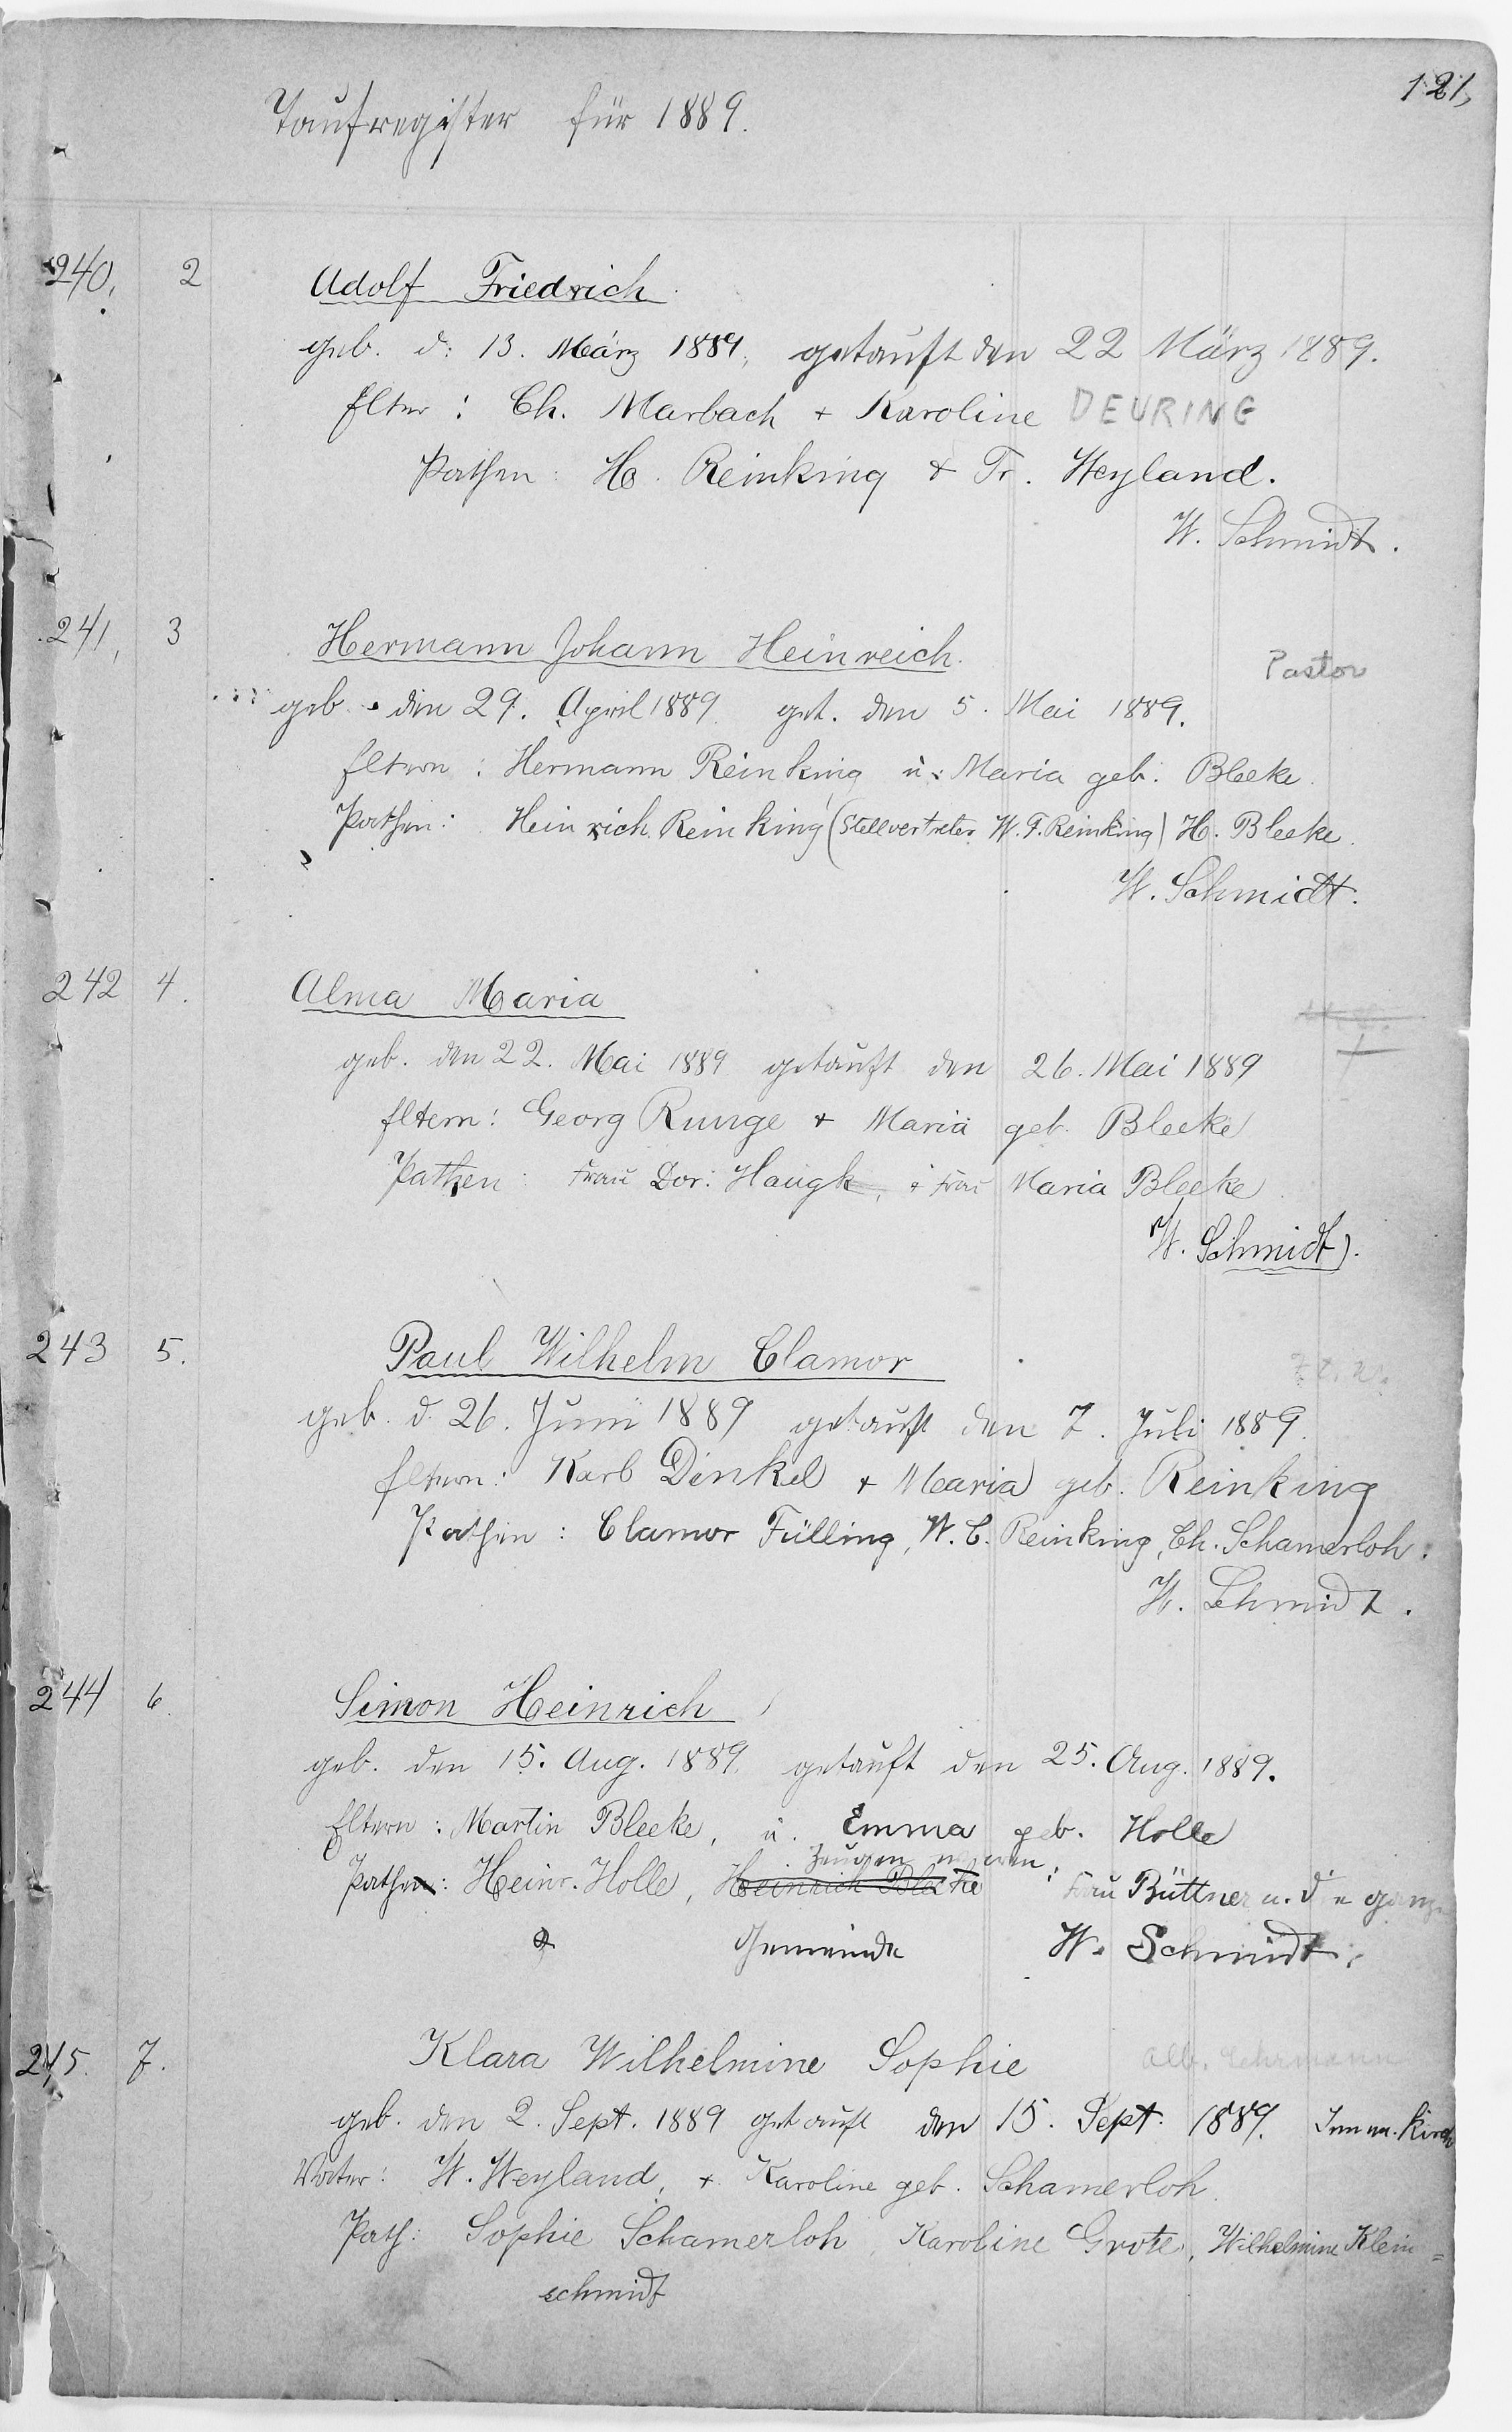 121,
Taufregister für 1889.
240, 2 Adolf Friedrich
geb. d. 13. März 1889, getauft den 22 März 1889.
Elter: Ch. Marbach + Karoline DEURING
Pathen: H. Reinking + Fr. Weyland.
W. Schmidt.
241, 3 Hermann Johann Heinreich.
Pastor
geb. den 29. April 1889. get. den 5. Mai 1889.
Eltern: Hermann Reinking u. Maria geb. Bleeke.
Pathen: Heinrich Reinking (Stellvertreter W. F. Reinking) H. Bleeke.
W. Schmidt.
242 4. Alma Maria
geb. den 22. Mai 1889 getauft den 26. Mai 1889
Eltern: Georg Runge + Maria geb. Bleeke
Pathen: Frau Dor: Haugk, + Frau Maria Bleeke
W. Schmidt.
243 5. Paul Wilhelm Clamor
geb. d. 26. Juni 1889 getauft den 7. Juli 1889.
Eltern: Karl Dinkel + Maria geb. Reinking
Pathen: Clamor Fülling, W. C. Reinking, Ch. Schamerloh.
W. Schmidt.
244 6. Simon Heinrich
geb. den 15. Aug. 1889. getauft den 25. Aug. 1889.
Eltern: Martin Bleeke, u. Emma geb. Holle
Zeugen waren:
Pathen: Heinr. Holle, Heinrich Bleeke Frau Büttner u. die ganze
Gemeinde W. Schmidt.
245. 7. Klara Wilhelmine Sophie
alb. Lehrmann
geb. den 2. Sept. 1889 getauft den 15. Sept. 1889. Imma. Kirch
Vater: W. Weyland, + Karoline geb. Schamerloh.
Path: Sophie Schamerloh, Karoline Grote, Wilhelmine Klein=
schmidt